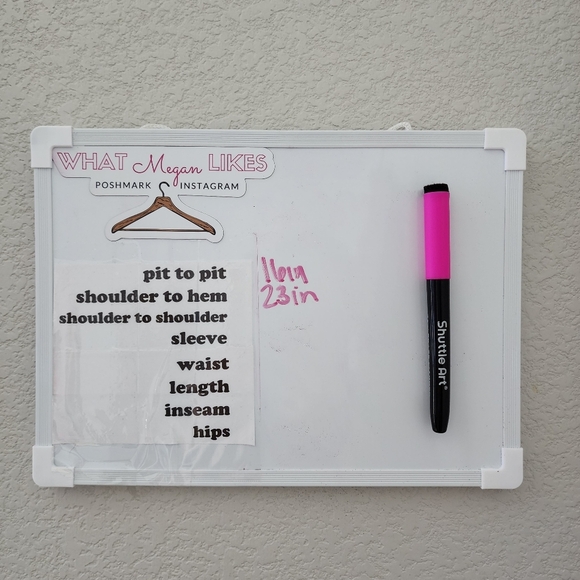 WHAT Megan LIKES
POSHMARK INSTAGRAM
pit to pit 16in
shoulder to hem 23in
shoulder to shoulder
sleeve
waist
length
inseam
hips
Shuttle Art®